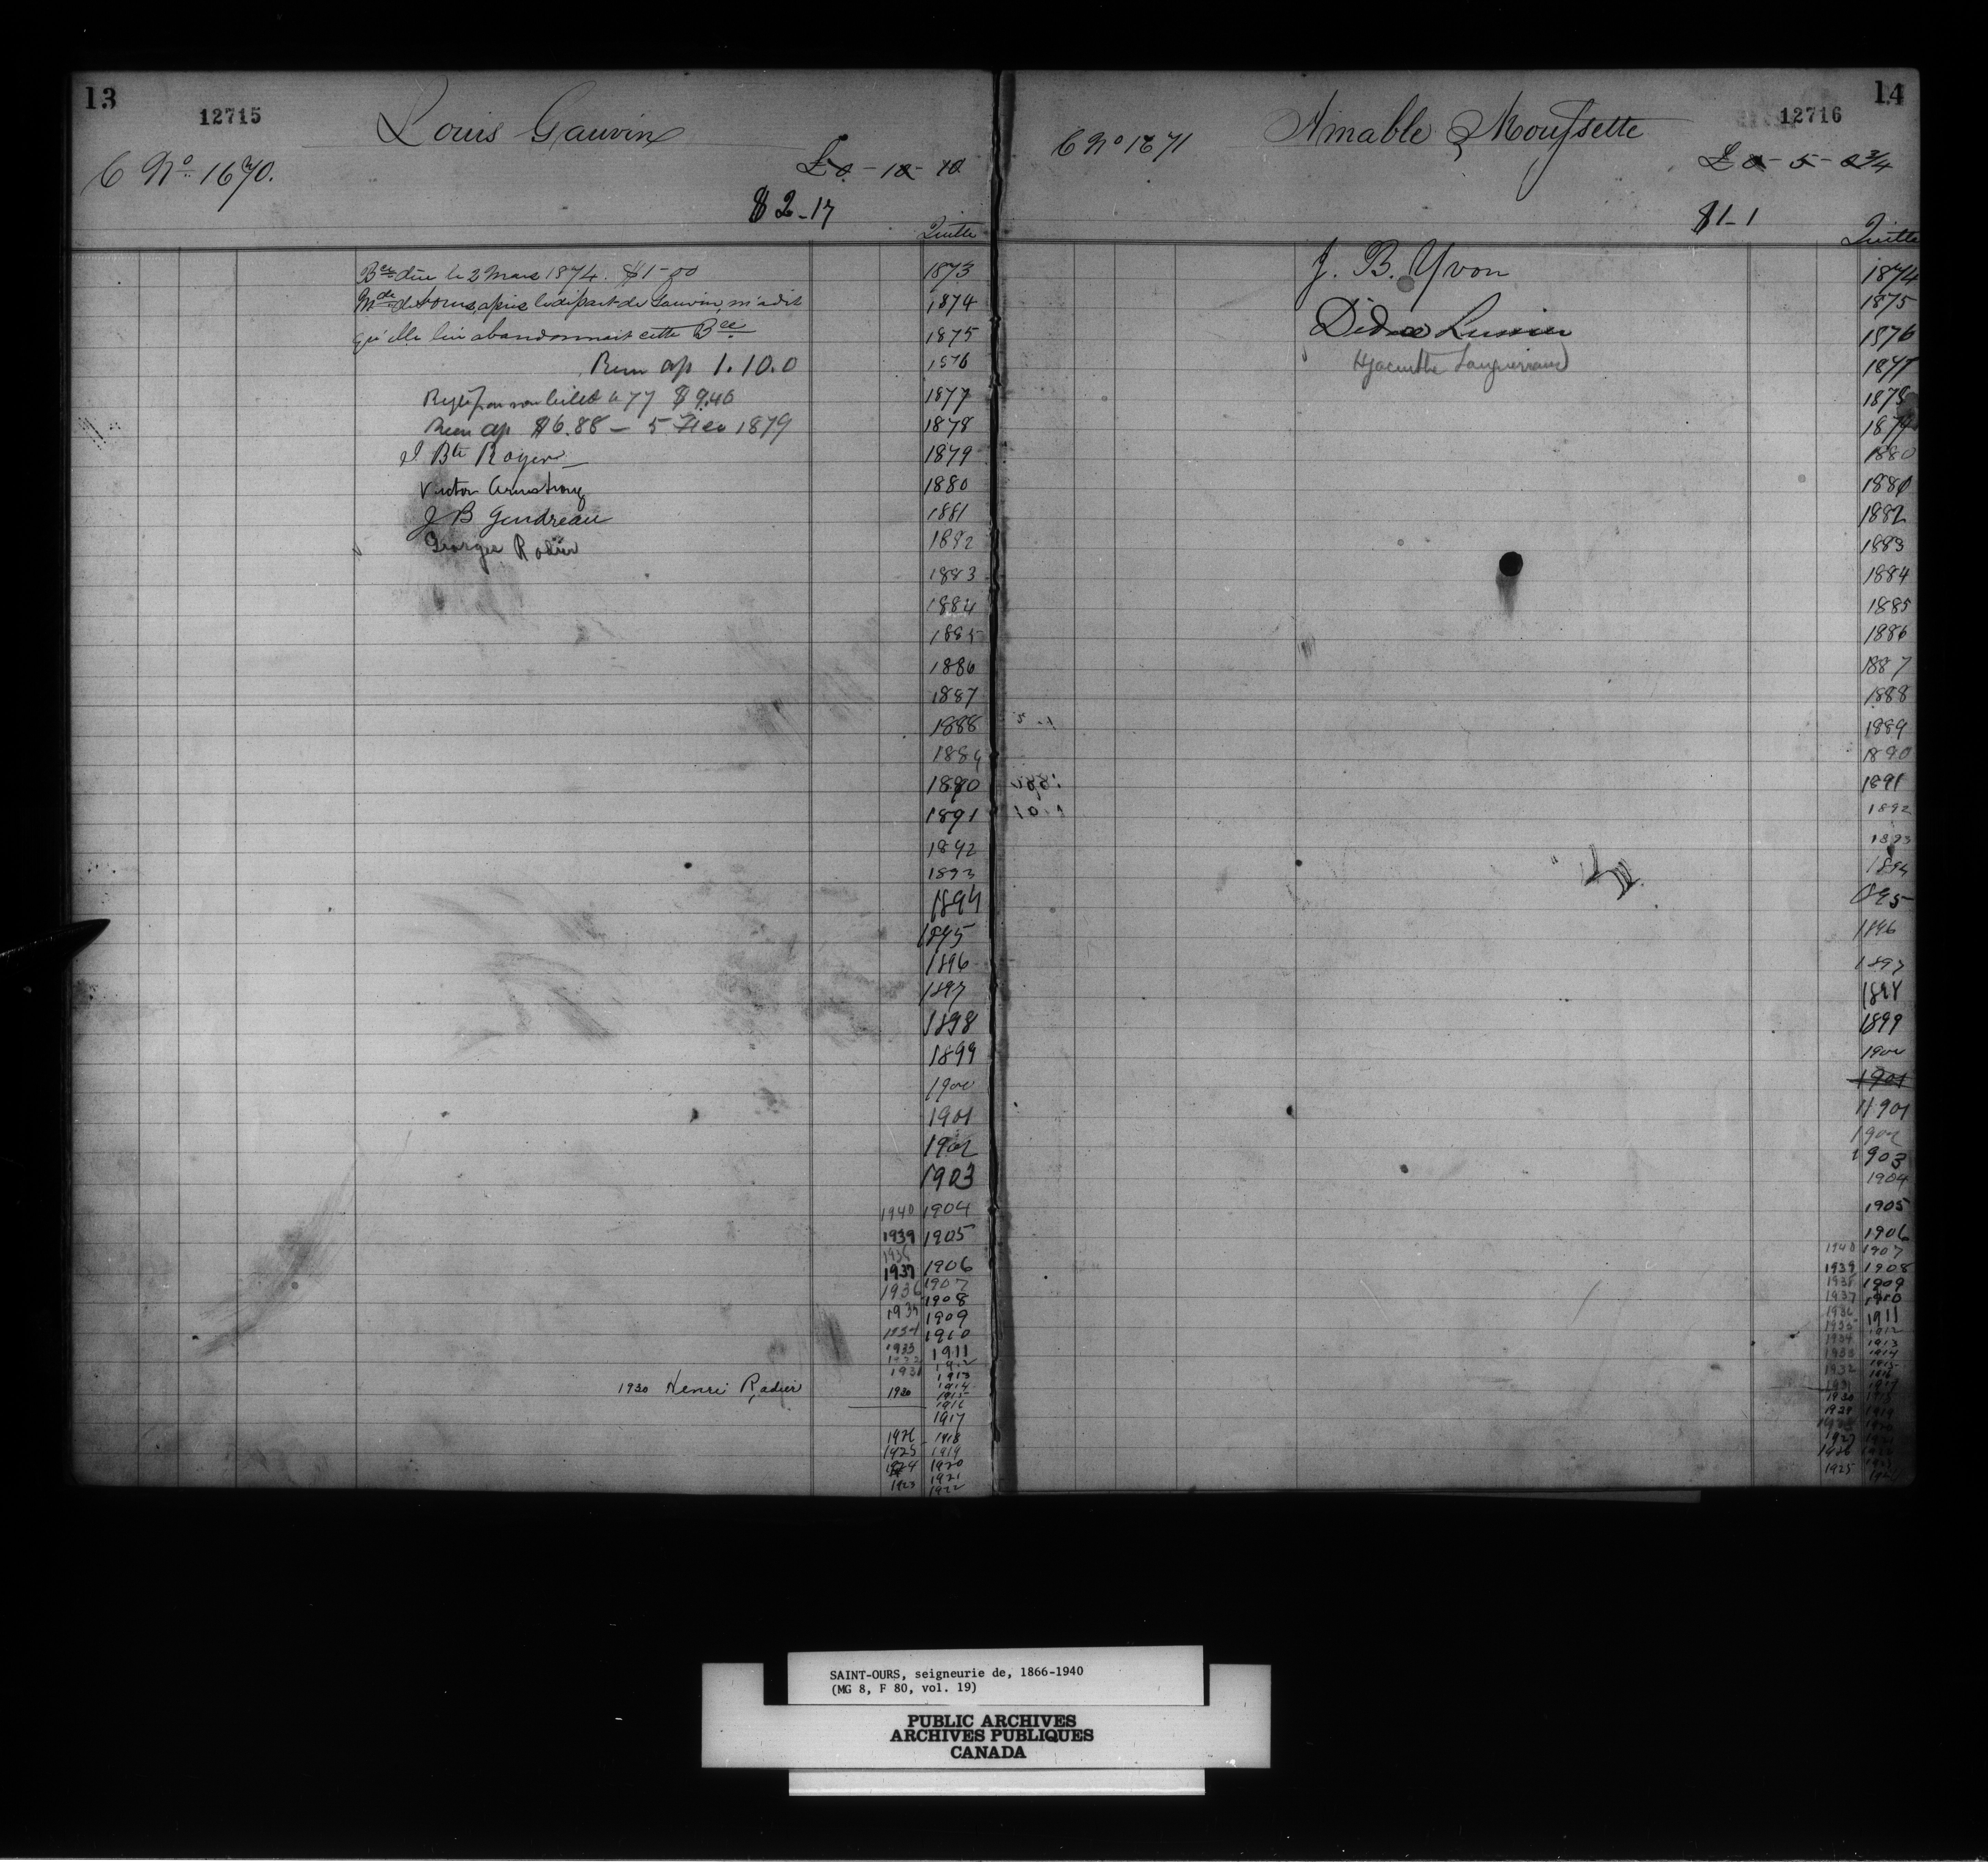 13
12715
Louis Gauvin
C No. 1670.
£0 - 10 - 10
$2-17
Quitte
Bce due le 2 Mars 1874. $1-00
Mde de St Ours, apres le depart de Gauvin, m'a dit
qu'elle lui abandonnait cette Bce
Reçu ap 1.10.0
Reglé par son billet 77 $9.40
Reçu ap $6.88 - 5 1879
J Bte Royer
Victor Armstrong
J B Gendreau
Georges Radier
1930 Henri Radier
1873
1874
1875
1876
1877
1878
1879
1880
1881
1882
1883
1884
1885
1886
1887
1888
1889
1890
1891
1892
1893
1894
1895
1896
1897
1898
1899
1900
1901
1902
1903
1940 1904
1939 1905
1938
1937 1906
1936 1907
1908
1935 1909
1934 1910
1933 1911
1932 1912
1931 1913
1914
1930 1915
1916
1917
1926 1918
1925 1919
1924 1920
1921
1923 1922
14
12716
Amable Moussette
C No 1671
£0 - 5 - 0 3/4
$1-1
Quitte
J. B. Yvon
Didace Lussier
Hyacinthe
1874
1875
1876
1877
1878
1879
1880
1881
1882
1883
1884
1885
1886
1887
1888
1889
1890
1891
1892
1893
1894
1895
1896
1897
1898
1899
1900
1901
1901
1902
1903
1904
1905
1906
1940 1907
1939 1908
1938 1909
1937 1910
1936 1911
1935 1912
1934 1913
1933 1914
1932 1915
1916
1931 1917
1930 1918
1929 1919
1928 1920
1927
1926
1925
SAINT-OURS, seigneurie de, 1866-1940
(MG 8, F 80, vol. 19)
PUBLIC ARCHIVES
ARCHIVES PUBLIQUES
CANADA